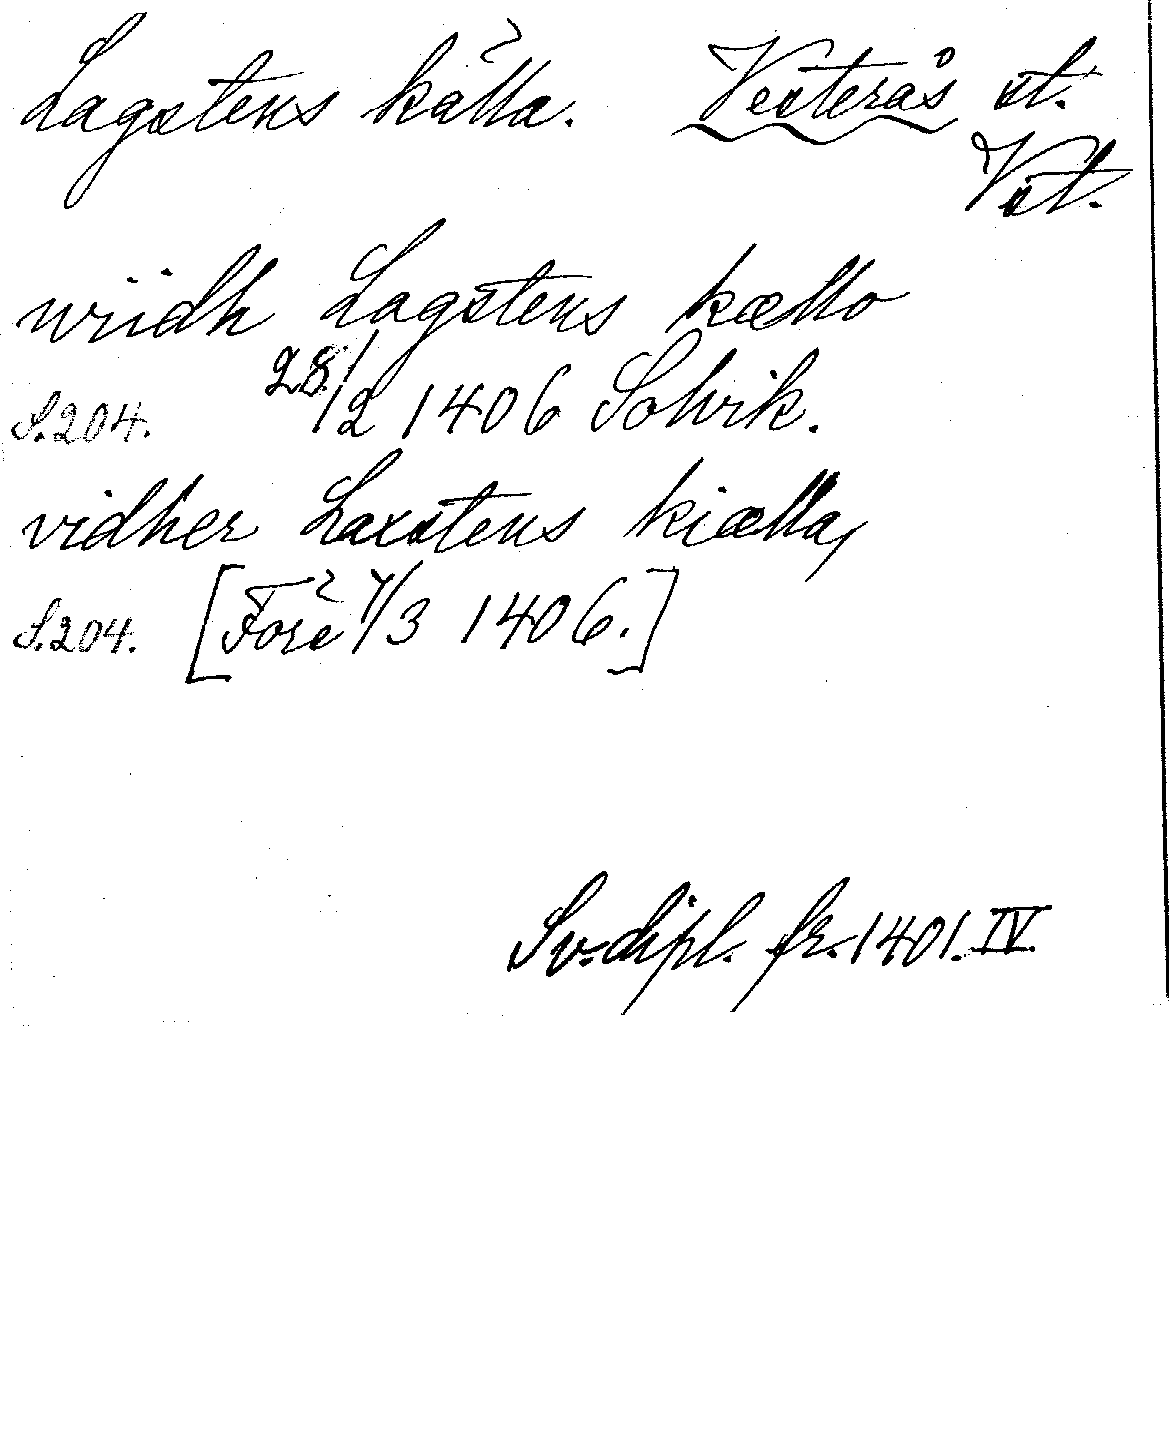 Lagstens källa. Vesterås st.
Vst.
wiidh Lagstens kællo
S.204. 28/2 1406 Solvik.
vidher Laxstens kiælla,
S.204. [Före 7/3 1406.]
Sv. dipl. fr. 1401. IV.